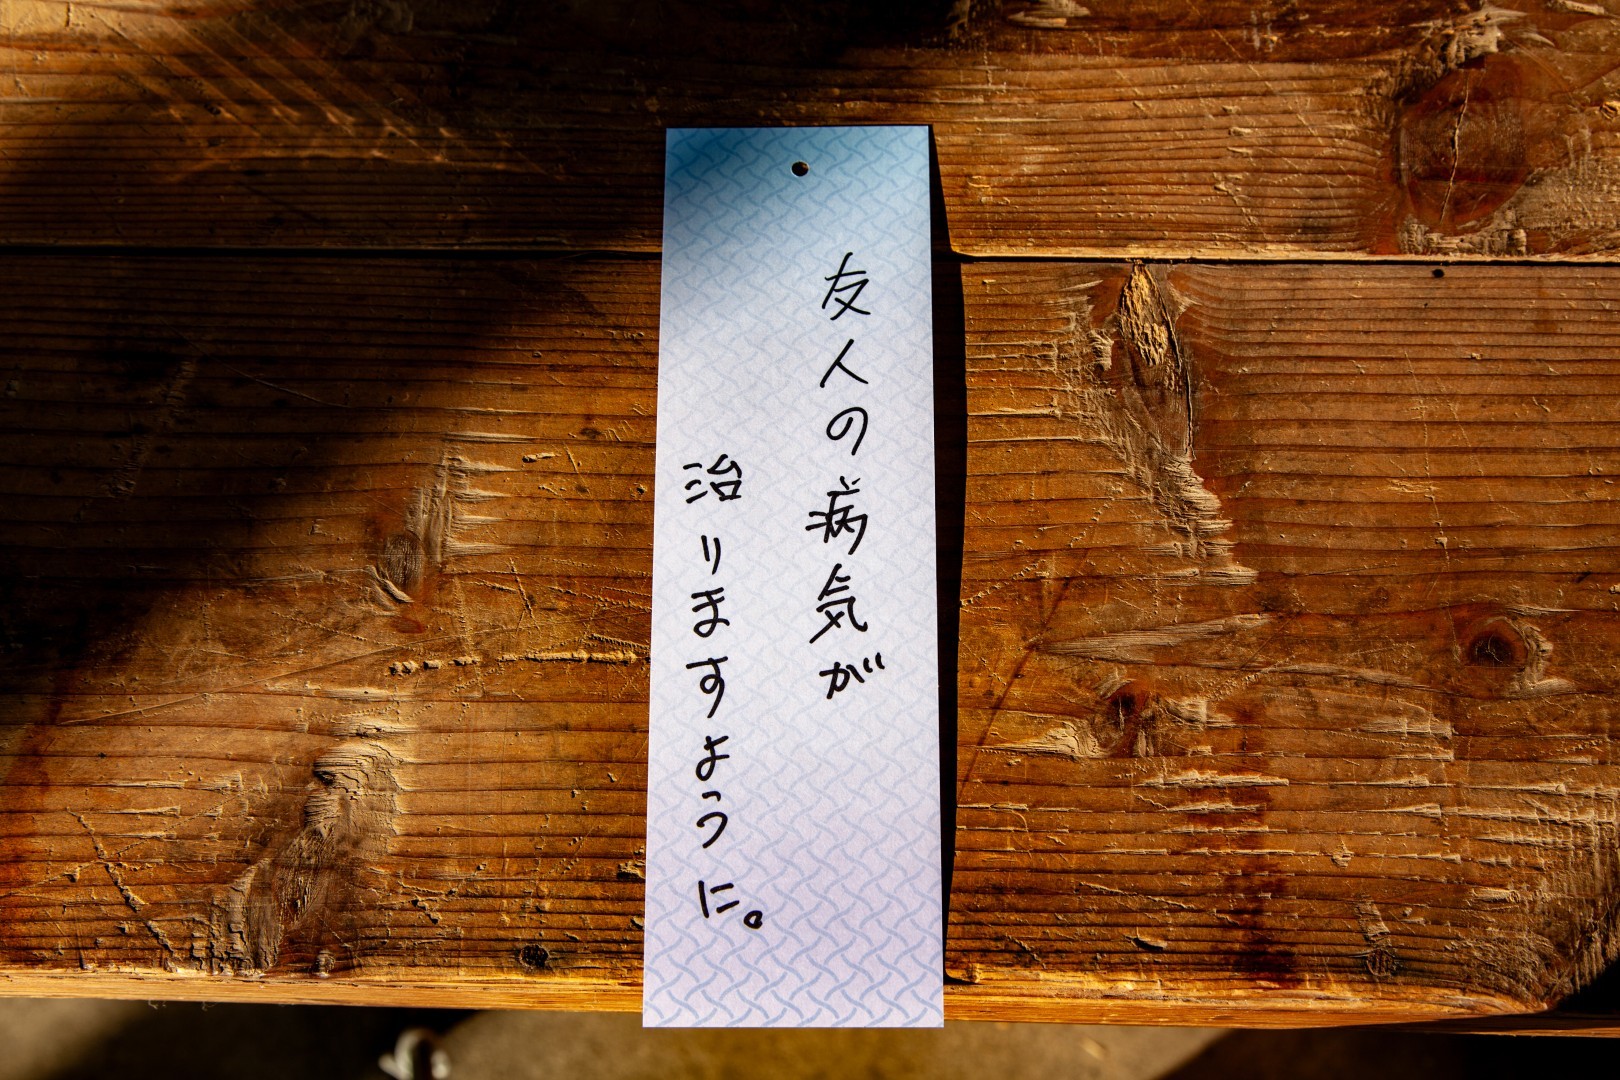 友人の病気が
治りますように。